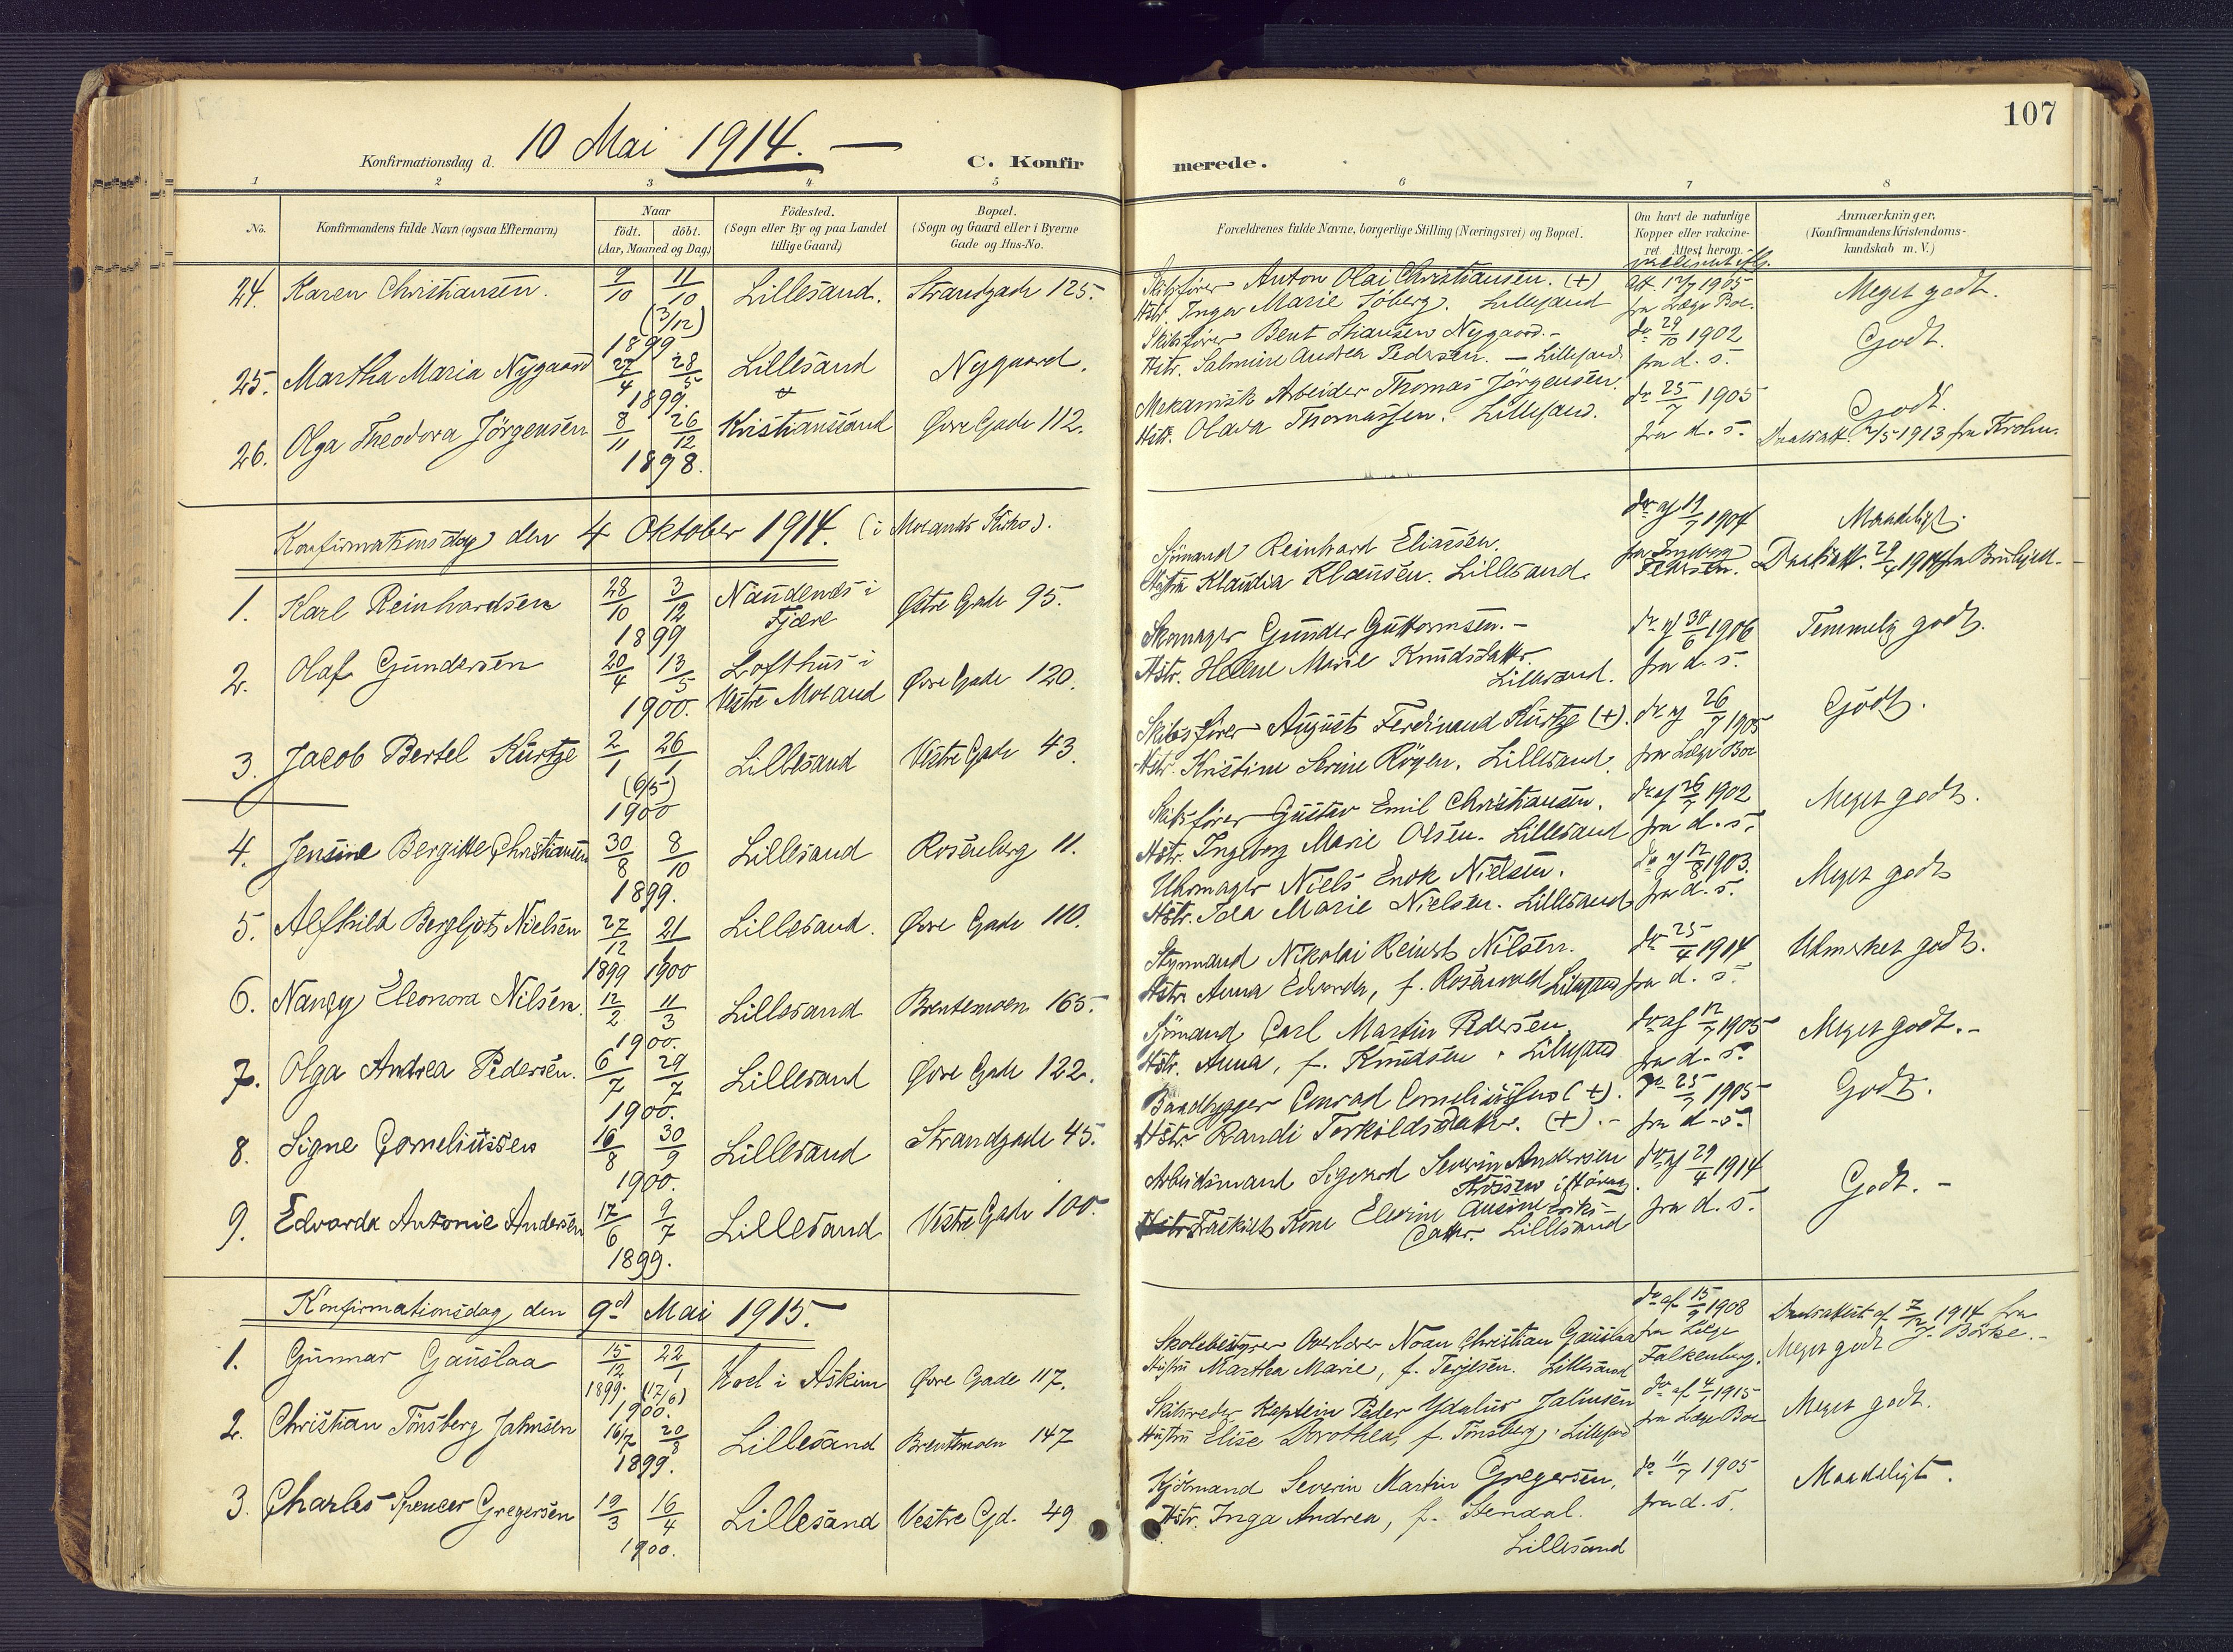 107
Konfirmationsdag d. 10 Mai 1914. —
C. Konfirmerede.
1 2 3 4 5 6 7 8
No.
Konfirmandens fulde Navn (ogsaa Efternavn)
Naar
födt. döbt.
(Aar, Maaned og Dag)
Födested.
(Sogn eller By og paa Landet
tillige Gaard)
Bopæl.
(Sogn og Gaard eller i Byerne
Gade og Hus-No.
Forældrenes fulde Navne, borgerlige Stilling (Næringsvei) og Bopæl.
Om havt de naturlige
Kopper eller vakcine-
ret. Attest herom.
Anmærkninger.
(Konfirmandens Kristendoms-
kundskab m. V.)
24. Karen Christiansen. 9/10 11/10 (3/12) 1899 Lillesand. Strandgade 125.
Skibsfører Anton Olai Christiansen. (+)
Hstr. Inger Marie Söberg. Lillesand
1905
fra Læge Boe.
Meget godt.
25. Martha Maria Nygaard 27/4 28/5 1899. Lillesand Nygaard.
Skibsfører Bent Stiansen Nygaard.-
Hstr. Salmine Andrea Pedersen. — Lillesand
do 29/10 1902
fra d. s.
Godt.
26. Olga Theodora Jörgensen 8/11 26/12 1898. Kristianssand Øvre Gade 112.
Mekanisk Arbeider Thomas Jörgensen.
Hstr. Olava Thomassen. Lillesand.
do 25/7 1905
fra d. s.
Godt.
Daabsatt. 2/5 1913 fra Krohn.
Konfirmationsdag den 4 Oktober 1914. (i Moland Kirke).
1. Karl Reinhardsen 28/10 3/12 1899 Naudenes i
Fjære Østre Gade 95.
Sjömand Reinhard Eliassen.
Hustru Klaudia Klausen. Lillesand.
do af 11/7 1904
fra Ingeborg
Pedersen.
Maadeligt.
Daabsatt. 29/4 1914 fra
2. Olaf Gundersen 20/4 13/5 1900. Lofthus i
Vestre Moland Øvre Gade 120.
Skomager Gunder Guttormsen.-
Hstr. Helene Marie Knudsdattr.
Lillesand.
do af 30/6 1906
fra d. s.
Temmelig godt.
3. Jacob Bertel Kurtze 2/1 26/1 (6/5) 1900 Lillesand Vestre Gade 43.
Skibsfører August Ferdinand Kurtze (+).
Hstr. Kristine Serine Röyen. Lillesand.
do af 26/7 1905
fra Læge Boe
Godt.
4. Jensine Bergitte Christiansen 30/8 8/10 1899. Lillesand Rosenberg 11.
Skibsfører Gustav Emil Christiansen.
Hstr. Ingeborg Marie Olsen. Lillesand
do af 26/7 1902
fra d. s.
Meget godt.
5. Alfhild Bergljot Nielsen 27/12 1899 21/1 1900 Lillesand. Øvre Gade 110.
Uhrmager Niels Enok Nielsen.
Hstr. Ida Marie Nielsen. Lillesand
do af 12/8 1903.
fra d. s.
Meget godt
6. Nancy Eleonora Nilsen. 12/2 11/3 1900. Lillesand Brentemoen 165.
Styrmand Nikolai Reinert Nilsen.
Hstr. Anna Edvarda, f. Rosenvold Lillesand
do 25/4 1914
fra d. s.
Udmerket godt.
7. Olga Andrea Pedersen. 6/7 29/7 1900. Lillesand Øvre Gade 122.
Sjömand Carl Martin Pedersen
Hstr. Anna, f. Knudsen. Lillesand
do af 12/7 1905
fra d. s.
Meget godt.-
8. Signe Corneliussen 16/8 30/9 1900. Lillesand Strandgade 45.
Baadbygger Conrad Corneliussen (+).
Hstr Randi Torkildsdattr. (+).-
do 25/7 1905
fra d. s.
Godt.
9. Edvarda Antonie Andersen 17/6 9/7 1899. Lillesand Vestre Gade 100.
Arbeidsmand Sigvard Severin Andersen
Fraskilt Kone Elevine Ausine Eriks-
dattr. Lillesand
do af 29/4 1914
fra d. s.
Godt.-
Konfirmationsdag den 9d Mai 1915.
1. Gunnar Gauslaa 15/12 1899. 22/1 (17/6) 1900. Hoel i Askim Øvre Gade 117.
Skolebestyrer Overlærer Noan Christian Gauslaa
Hustru Martha Marie, f. Terjesen. Lillesand
do af 15/9 1908
fra Læge
Falkenberg.
Daabsattest af 7/12 1914 fra
J. Börke.-
Meget godt
2. Christian Tönsberg Jahnsen 16/7 20/8 1899. Lillesand Brentemoen 147
Skibsreder Kaptein Peder Ydalius Jahnsen
Hustru Elise Dorothea, f. Tönsberg, Lillesand
do af 4/1 1915
fra Læge Boe
Meget godt.
3. Charles Spencer Gregersen 19/3 16/4 1900. Lillesand Vestre Gd. 49
Kjöbmand Severin Martin Gregersen,
Hstr. Inga Andrea, f. Stendal.
Lillesand
do 11/7 1905
fra d. s.
Maadeligt.